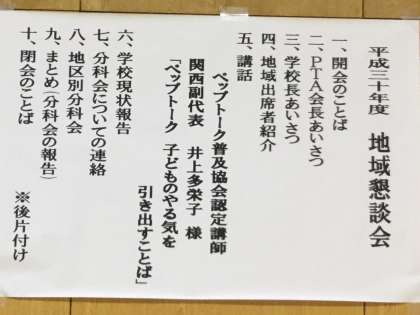 平成三十年度 地域懇談会
一、開会のことば
二、PTA会長あいさつ
三、学校長あいさつ
四、地域出席者紹介
五、講話
ペップトーク普及協会認定講師
関西副代表 井上多栄子 様
「ペップトーク 子どものやる気を
引き出すことば」
六、学校現状報告
七、分科会についての連絡
八、地区別分科会
九、まとめ(分科会の報告)
十、閉会のことば
※後片付け